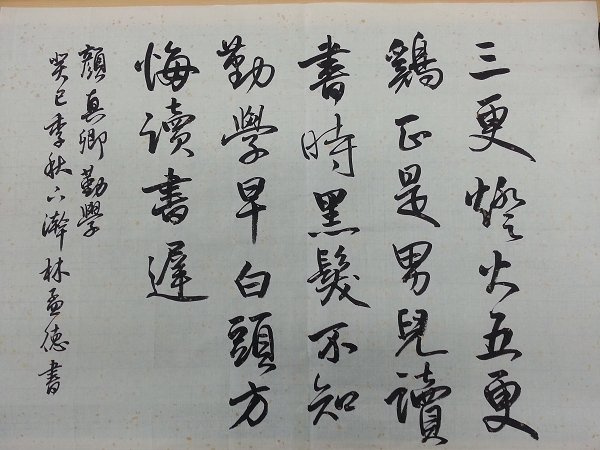 三更燈火五更
鷄正是男兒讀
書時黑髮不知
勤學早白頭方
悔讀書遲
顏真卿勤學
癸巳季秋下澣林孟德書